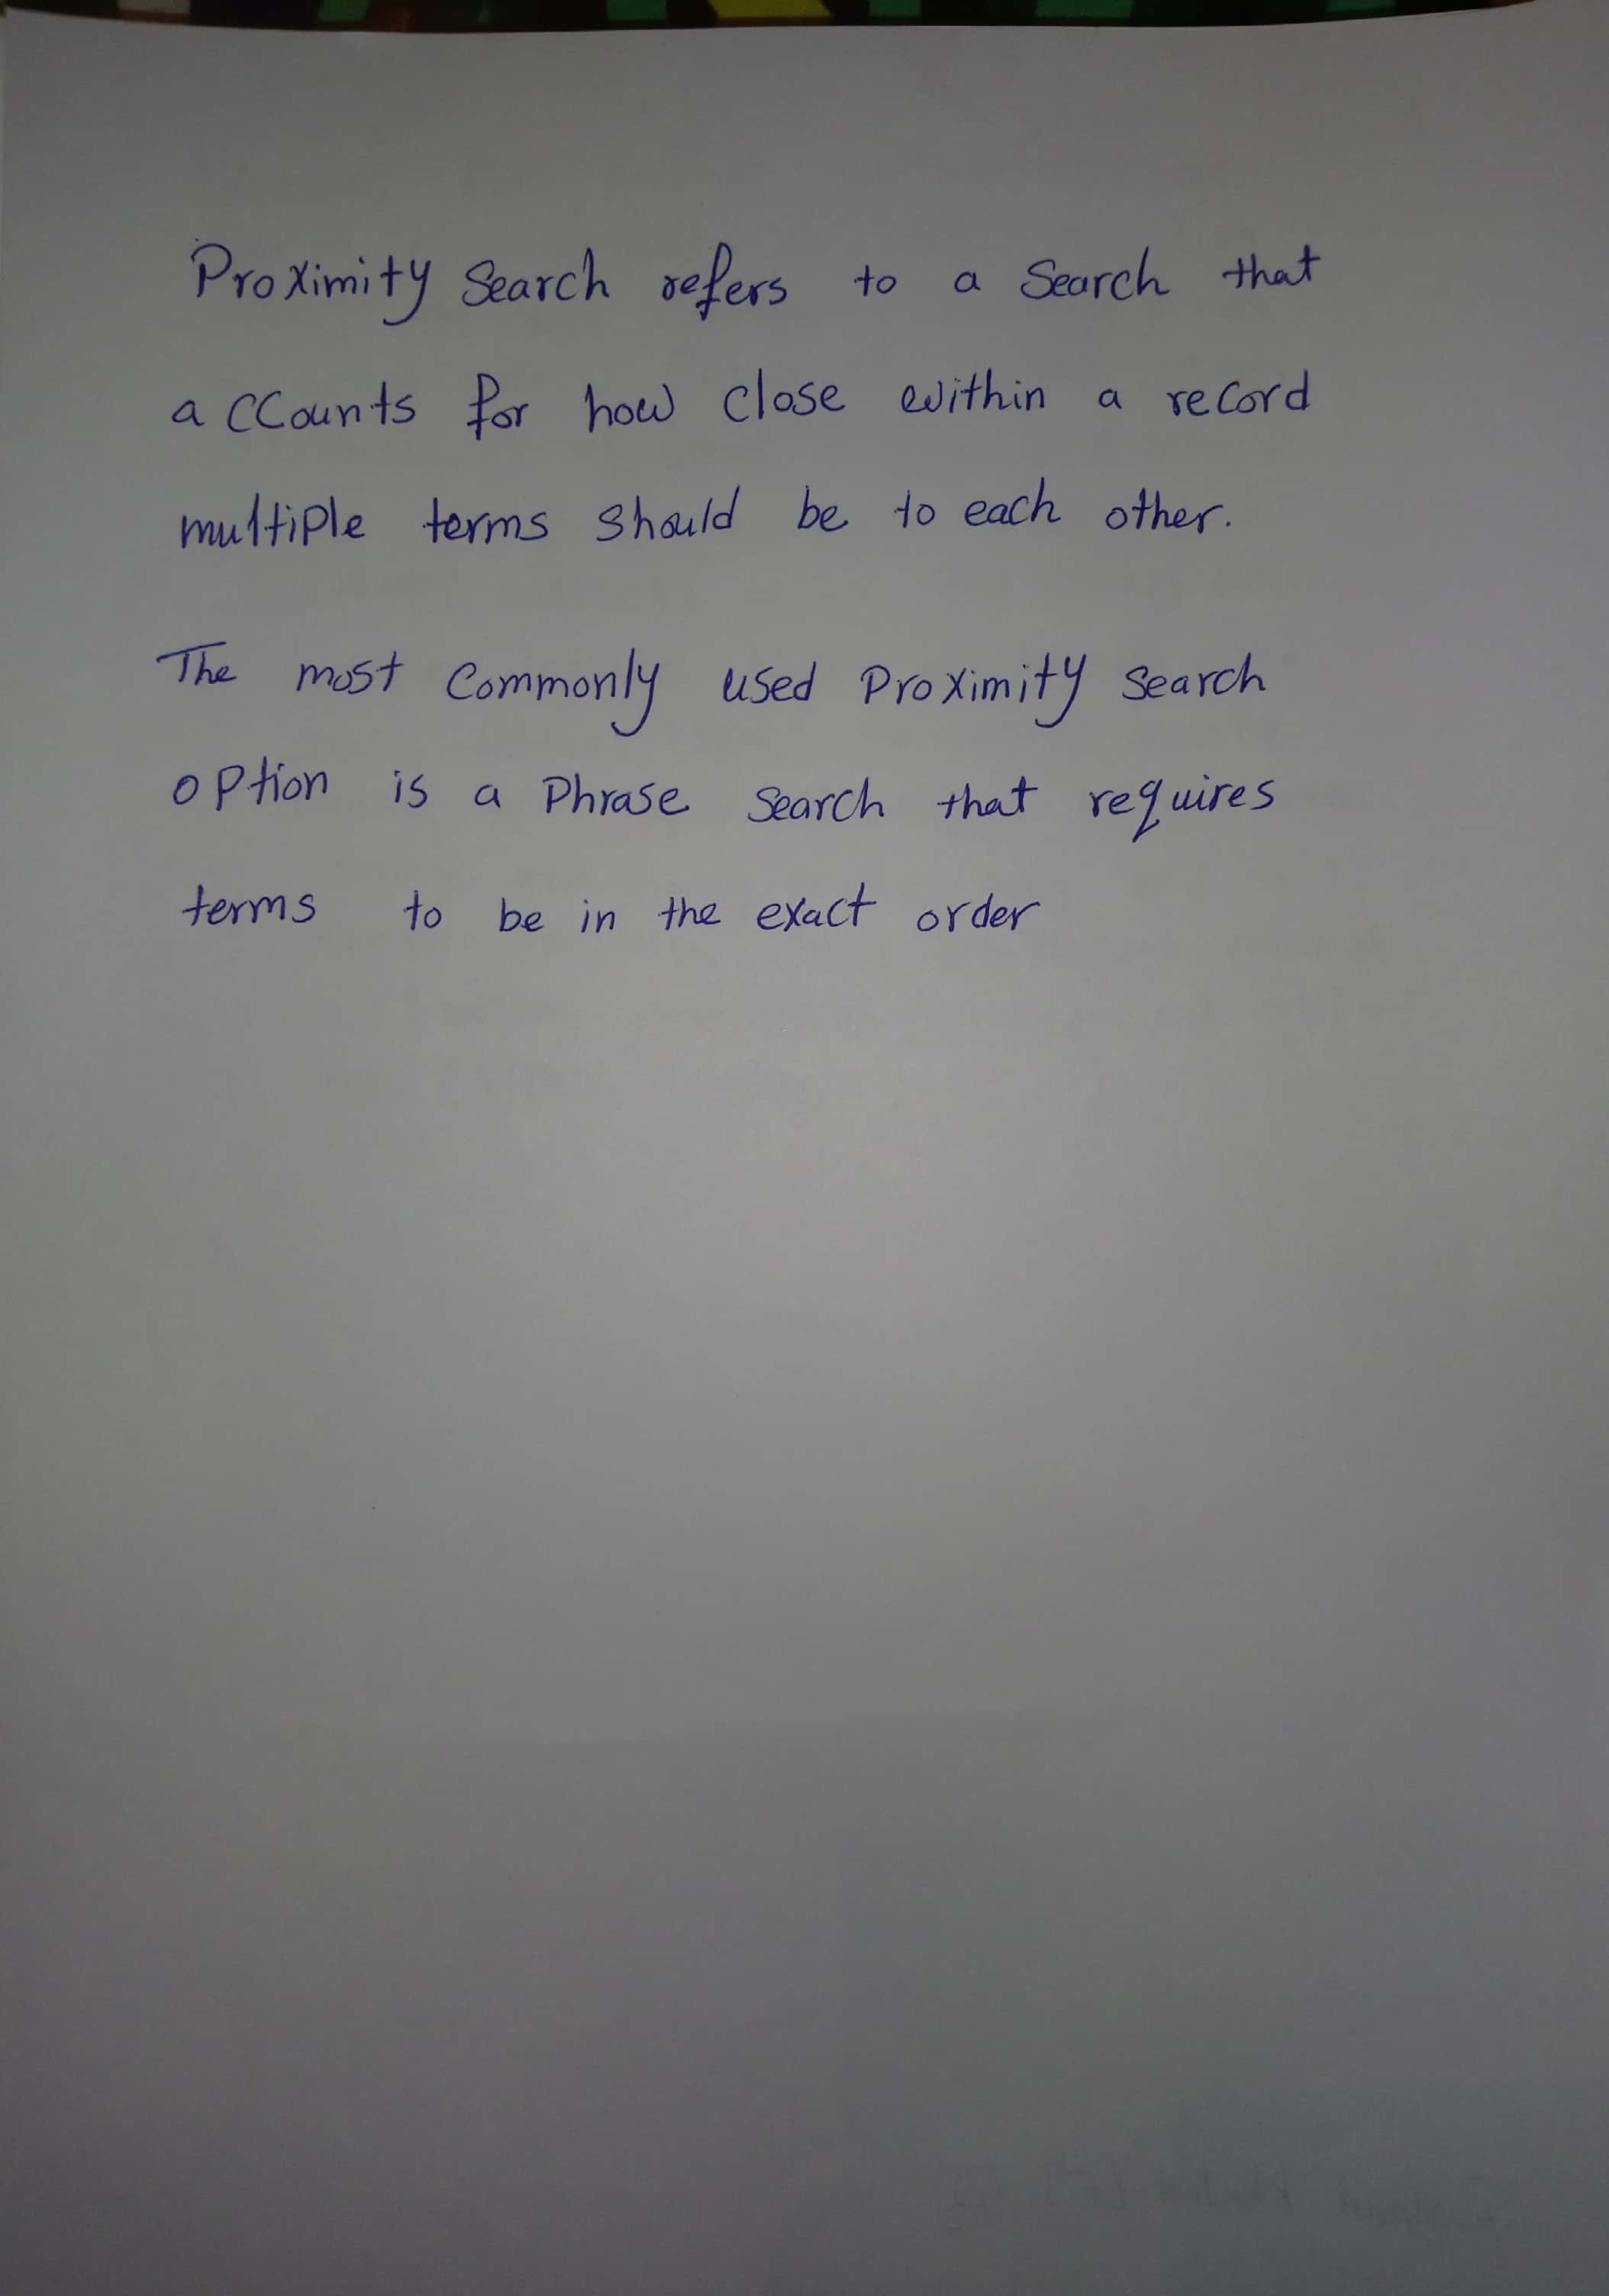 Proximity Search refers to a Search that
accounts for how close within a record
multiple terms should be to each other.
The most commonly used Proximity Search
option is a Phrase Search that requires
terms to be in the exact order